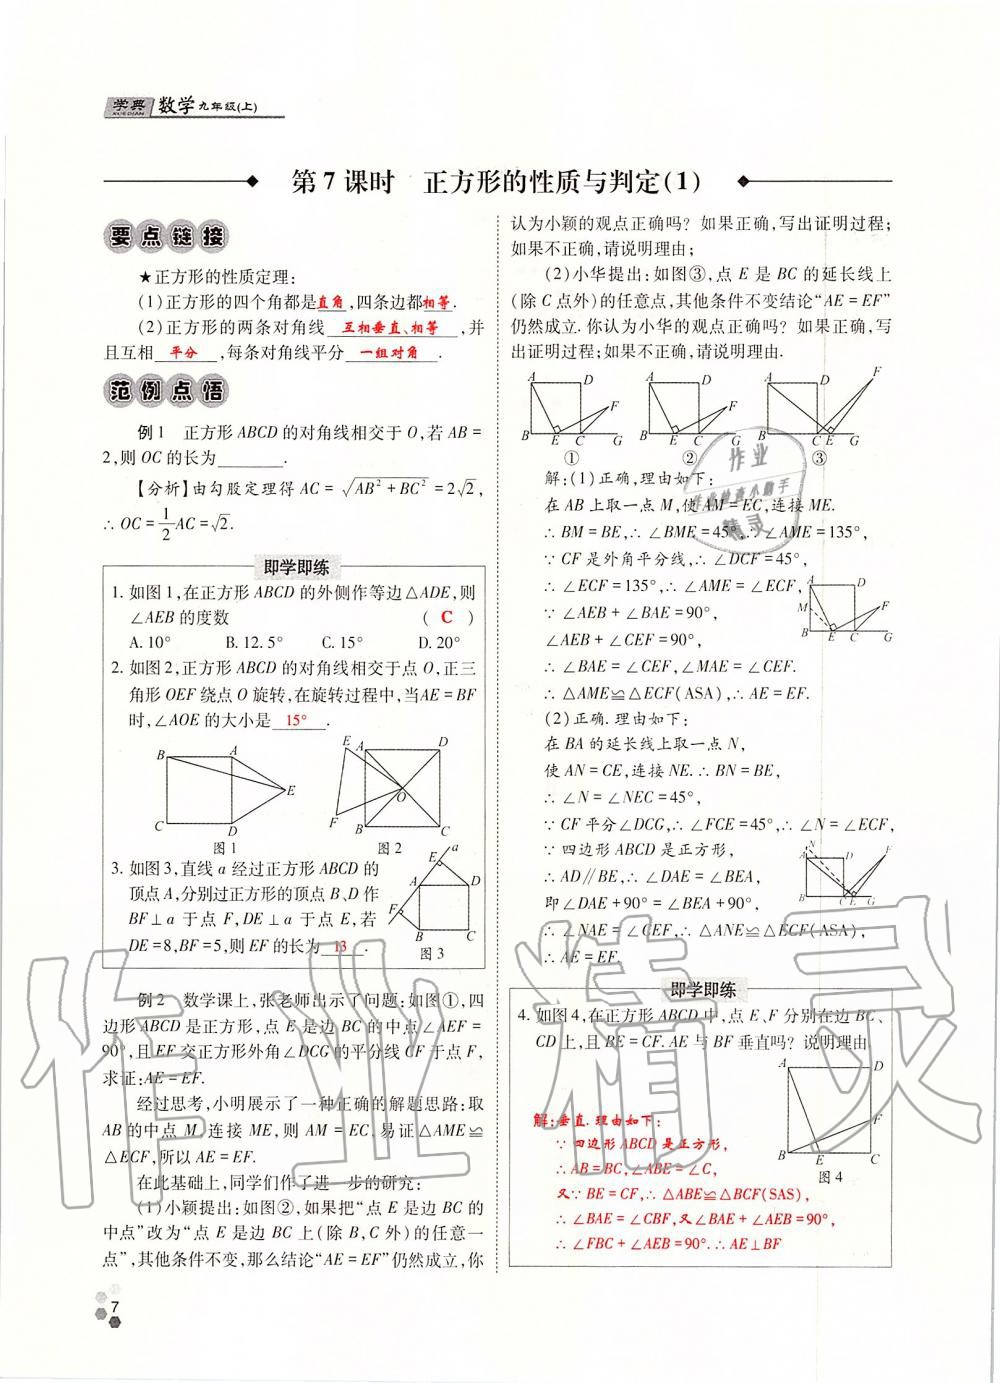 学典 数学 九年级(上)
XUEDIAN
第 7 课时 正方形的性质与判定(1)
要点链接
★正方形的性质定理:
(1)正方形的四个角都是直角,四条边都相等.
(2)正方形的两条对角线 互相垂直、相等 ,并
且互相 平分 ,每条对角线平分 一组对角 .
范例点悟
例 1 正方形 ABCD 的对角线相交于 O,若 AB =
2,则 OC 的长为______.
【分析】由勾股定理得 AC = √(AB² + BC²) = 2√2,
∴ OC = 1/2 AC = √2.
即学即练
1. 如图 1,在正方形 ABCD 的外侧作等边△ADE,则
∠AEB 的度数 ( C )
A. 10° B. 12. 5° C. 15° D. 20°
2. 如图 2,正方形 ABCD 的对角线相交于点 O,正三
角形 OEF 绕点 O 旋转,在旋转过程中,当AE = BF
时,∠AOE 的大小是 15° .
B A E C D
图 1
E A D O F B C
图 2
3. 如图 3,直线 a 经过正方形 ABCD 的
顶点 A,分别过正方形的顶点 B、D 作
BF⊥a 于点 F,DE⊥a 于点 E,若
DE = 8,BF = 5,则 EF 的长为 13 .
E a A D F B C
图 3
例 2 数学课上,张老师出示了问题:如图①,四
边形 ABCD 是正方形,点 E 是边 BC 的中点∠AEF =
90°,且 EF 交正方形外角∠DCG 的平分线 CF 于点 F,
求证:AE = EF.
经过思考,小明展示了一种正确的解题思路:取
AB 的中点 M,连接 ME,则 AM = EC,易证△AME≌
△ECF,所以 AE = EF.
在此基础上,同学们作了进一步的研究:
(1)小颖提出:如图②,如果把“点 E 是边 BC 的
中点”改为“点 E 是边 BC 上(除 B,C 外)的任意一
点”,其他条件不变,那么结论“AE = EF”仍然成立,你
认为小颖的观点正确吗? 如果正确,写出证明过程;
如果不正确,请说明理由;
(2)小华提出:如图③,点 E 是 BC 的延长线上
(除 C 点外)的任意点,其他条件不变结论“AE = EF”
仍然成立. 你认为小华的观点正确吗? 如果正确,写
出证明过程;如果不正确,请说明理由.
A D F B E C G
①
A D F B E C G
②
A D F B C E G
③
解:(1)正确,理由如下:
在 AB 上取一点 M,使 AM = EC,连接 ME.
∴ BM = BE,∴ ∠BME = 45°,∴ ∠AME = 135°,
∵ CF 是外角平分线,∴ ∠DCF = 45°,
∴ ∠ECF = 135°,∴ ∠AME = ∠ECF,
∵ ∠AEB + ∠BAE = 90°,
∠AEB + ∠CEF = 90°,
∴ ∠BAE = ∠CEF,∠MAE = ∠CEF.
∴ △AME≌△ECF(ASA),∴ AE = EF.
A D M F B E C G
(2)正确. 理由如下:
在 BA 的延长线上取一点 N,
使 AN = CE,连接 NE. ∴ BN = BE,
∴ ∠N = ∠NEC = 45°,
∵ CF 平分∠DCG,∴ ∠FCE = 45°,∴ ∠N = ∠ECF,
∵ 四边形 ABCD 是正方形,
∴ AD∥BE,∴ ∠DAE = ∠BEA,
即∠DAE + 90° = ∠BEA + 90°,
∴ ∠NAE = ∠CEF,∴ △ANE≌△ECF(ASA),
∴ AE = EF.
N A D F B C E G
即学即练
4. 如图 4,在正方形 ABCD 中,点 E、F 分别在边 BC、
CD 上,且 BE = CF. AE 与 BF 垂直吗? 说明理由.
解:垂直. 理由如下:
∵ 四边形 ABCD 是正方形,
∴ AB = BC,∠ABE = ∠C,
又∵ BE = CF,∴ △ABE≌△BCF(SAS),
∴ ∠BAE = ∠CBF,又∠BAE + ∠AEB = 90°,
∴ ∠FBC + ∠AEB = 90°. ∴ AE⊥BF
A D F B E C
图 4
7
作业
作业检查小助手
精灵
作业精灵